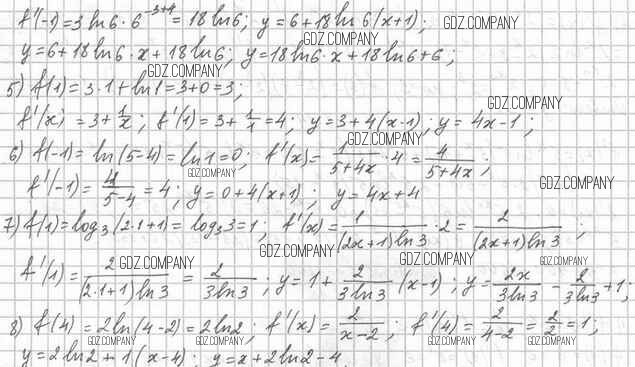 f'(-1)=3 ln6·6^(-3+4)=18 ln6; y=6+18 ln6(x+1); GDZ.COMPANY
GDZ.COMPANY
y=6+18 ln6·x+18 ln6; y=18 ln6·x+18 ln6+6;
GDZ.COMPANY
5) f(1)=3·1+ln1=3+0=3;
GDZ.COMPANY
f'(x)=3+1/x; f'(1)=3+1/1=4; y=3+4(x-1); y=4x-1;
GDZ.COMPANY
6) f(-1)=ln(5-4)=ln1=0; f'(x)=1/(5+4x)·4=4/(5+4x);
GDZ.COMPANY
f'(-1)=4/(5-4)=4; y=0+4(x+1); y=4x+4
GDZ.COMPANY
7) f(1)=log₃(2·1+1)=log₃3=1; f'(x)=1/((2x+1)ln3)·2=2/((2x+1)ln3);
GDZ.COMPANY GDZ.COMPANY GDZ.COMPANY GDZ.COMPANY
f'(1)=2/((2·1+1)ln3)=2/(3ln3); y=1+2/(3ln3)(x-1); y=2x/(3ln3)-2/(3ln3)+1;
GDZ.COMPANY GDZ.COMPANY
8) f(4)=2ln(4-2)=2ln2; f'(x)=2/(x-2); f'(4)=2/(4-2)=2/2=1;
GDZ.COMPANY GDZ.COMPANY GDZ.COMPANY GDZ.COMPANY
y=2ln2+1(x-4); y=x+2ln2-4